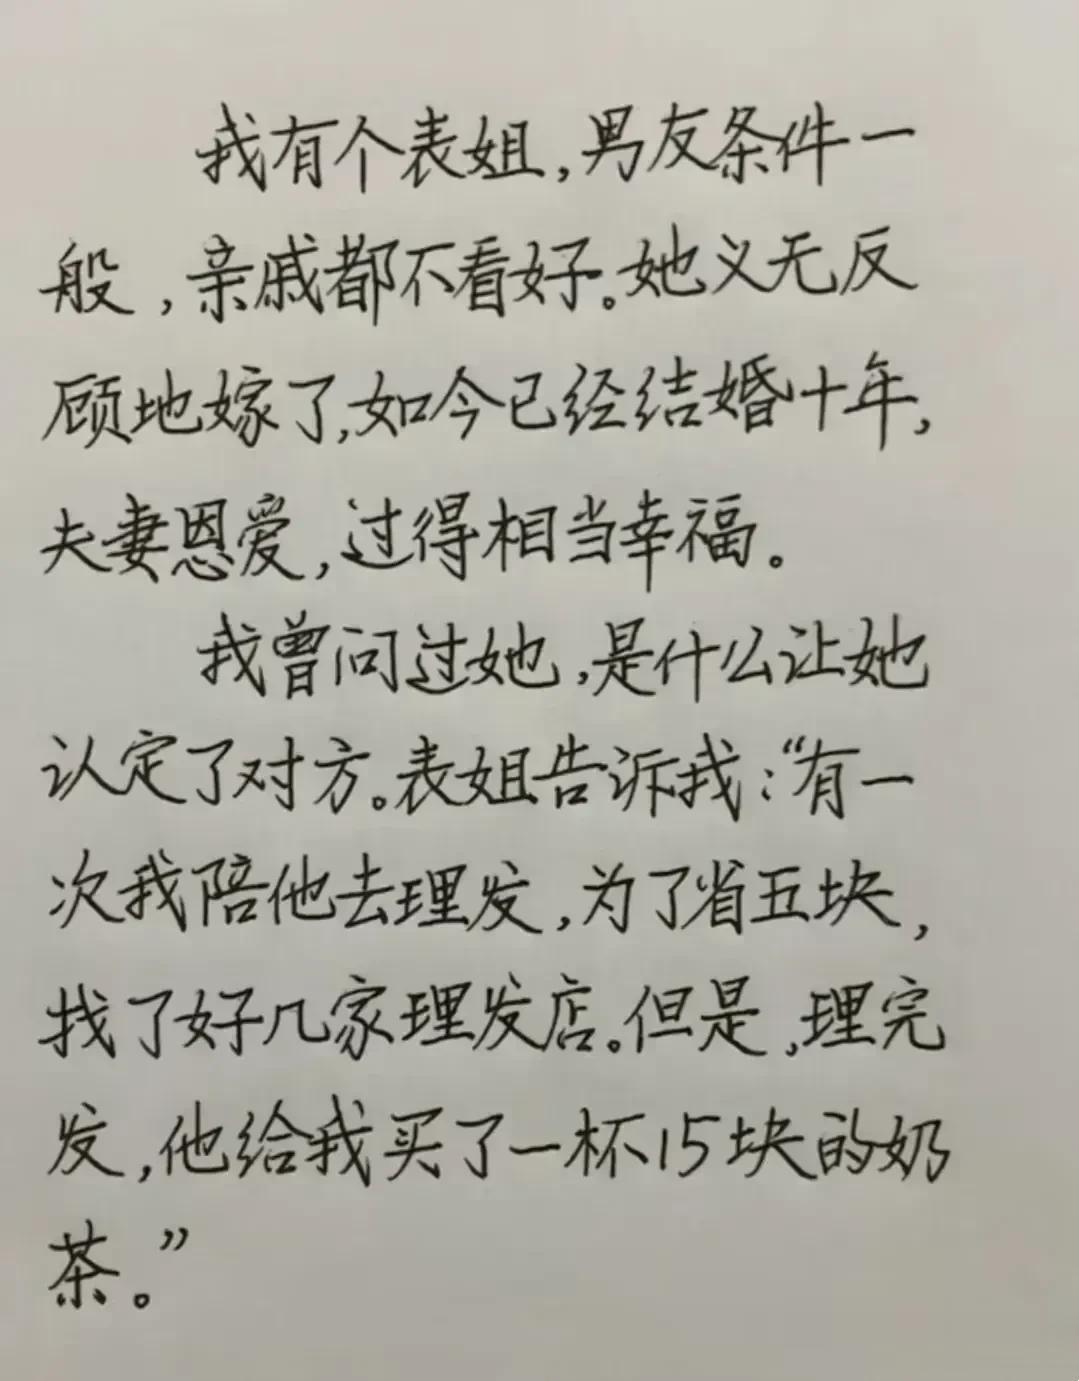 我有个表姐,男友条件一
般,亲戚都不看好。她义无反
顾地嫁了,如今已经结婚十年,
夫妻恩爱,过得相当幸福。
我曾问过她,是什么让她
认定了对方。表姐告诉我:“有一
次我陪他去理发,为了省五块,
找了好几家理发店。但是,理完
发,他给我买了一杯15块的奶
茶。”